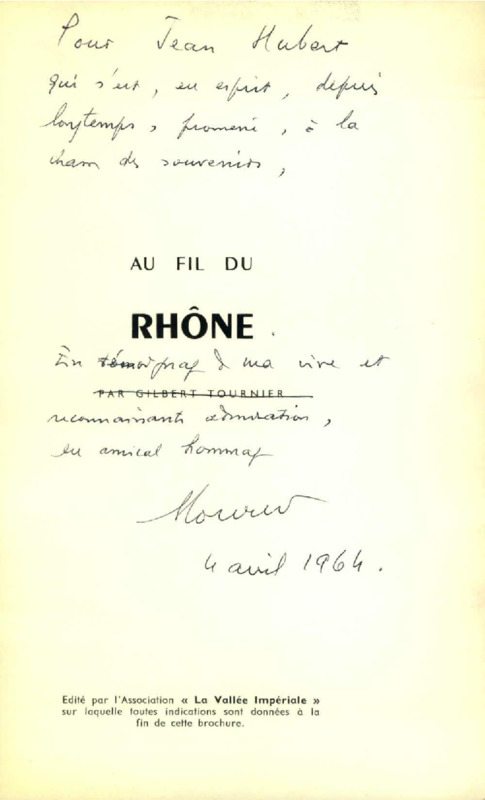 Pour Jean Hubert
qui s'est, en esprit, depuis
longtemps, promené, à la
des souvenirs,
AU FIL DU
RHÔNE.
En témoignage de ma vive et
PAR GILBERT TOURNIER
reconnaissante admiration,
en amical hommage
4 avril 1964.
Edité par l'Association « La Vallée Impériale »
sur laquelle toutes indications sont données à la
fin de cette brochure.